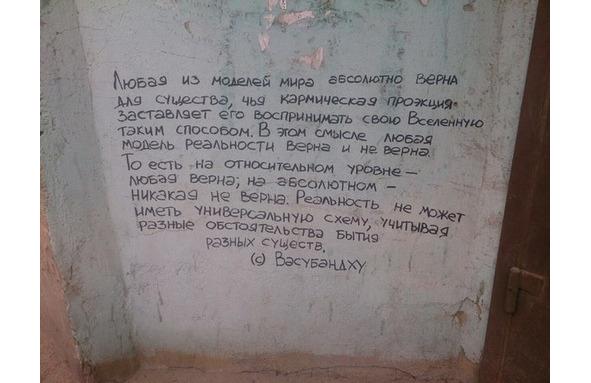 Любая из моделей мира абсолютно верна
для существа, чья кармическая проэкция
заставляет его воспринимать свою Вселенную
таким способом. В этом смысле любая
модель Реальности верна и не верна.
То есть на относительном уровне —
любая верна; на абсолютном —
никакая не верна. Реальность не может
иметь универсальную схему, учитывая
разные обстоятельства бытия
разных существ.
(с) Васубандху